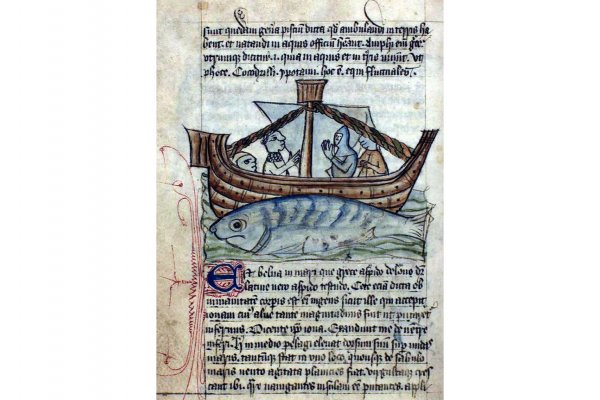 sunt quedam gen̄a pisciū dicta qd̄ ambulandi in terris ha
bent. et natandi in aquis officiū hēant. Amphi em̄ grec
utrumque dicitur .i. quia in aquis et in tr̄is uiuūt. ut
phoce. Cocodrilli. ypotami. hoc ē. equi fluctuales.
Est belua in mari que grece aspido delone dr̄
latine uero aspido testudo. Cete eciā dicta ob
inmanitatem corporis est em̄ ingens sicut ille qui accepit
ionam cuiꝰ aluꝰ tante magnitudinis fuit ut putaret
infernus. Dicente ip̄o iona. Exaudiuit me de uentre
inferi. h̄ in medio pelagi eleuat dorsum suū sup̄ undas
maris. tantumque stat in uno loco. quousque de sabulo
maris uento agitata planicies fiat. virgultaque cres
cant ibi. Qr̄e nauigantes insulam eē putantes. appli